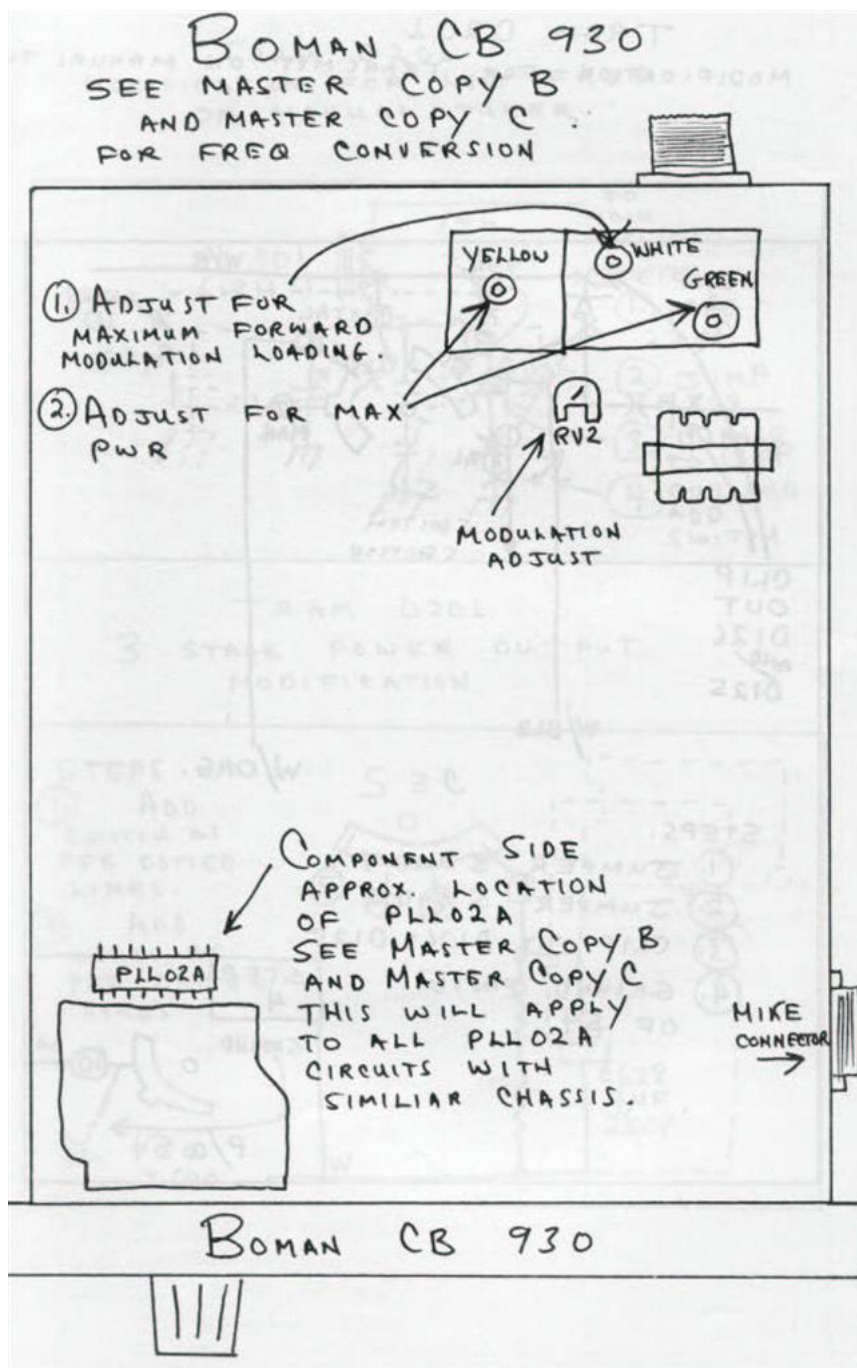 BOMAN CB 930
SEE MASTER COPY B
AND MASTER COPY C.
FOR FREQ CONVERSION
YELLOW
WHITE
GREEN
1. ADJUST FOR
MAXIMUM FORWARD
MODULATION LOADING.
2. ADJUST FOR MAX
PWR
RV2
MODULATION
ADJUST
COMPONENT SIDE
APPROX. LOCATION
OF PLL02A
SEE MASTER COPY B
AND MASTER COPY C
THIS WILL APPLY
TO ALL PLL02A
CIRCUITS WITH
SIMILIAR CHASSIS.
PLL02A
MIKE
CONNECTOR
BOMAN CB 930